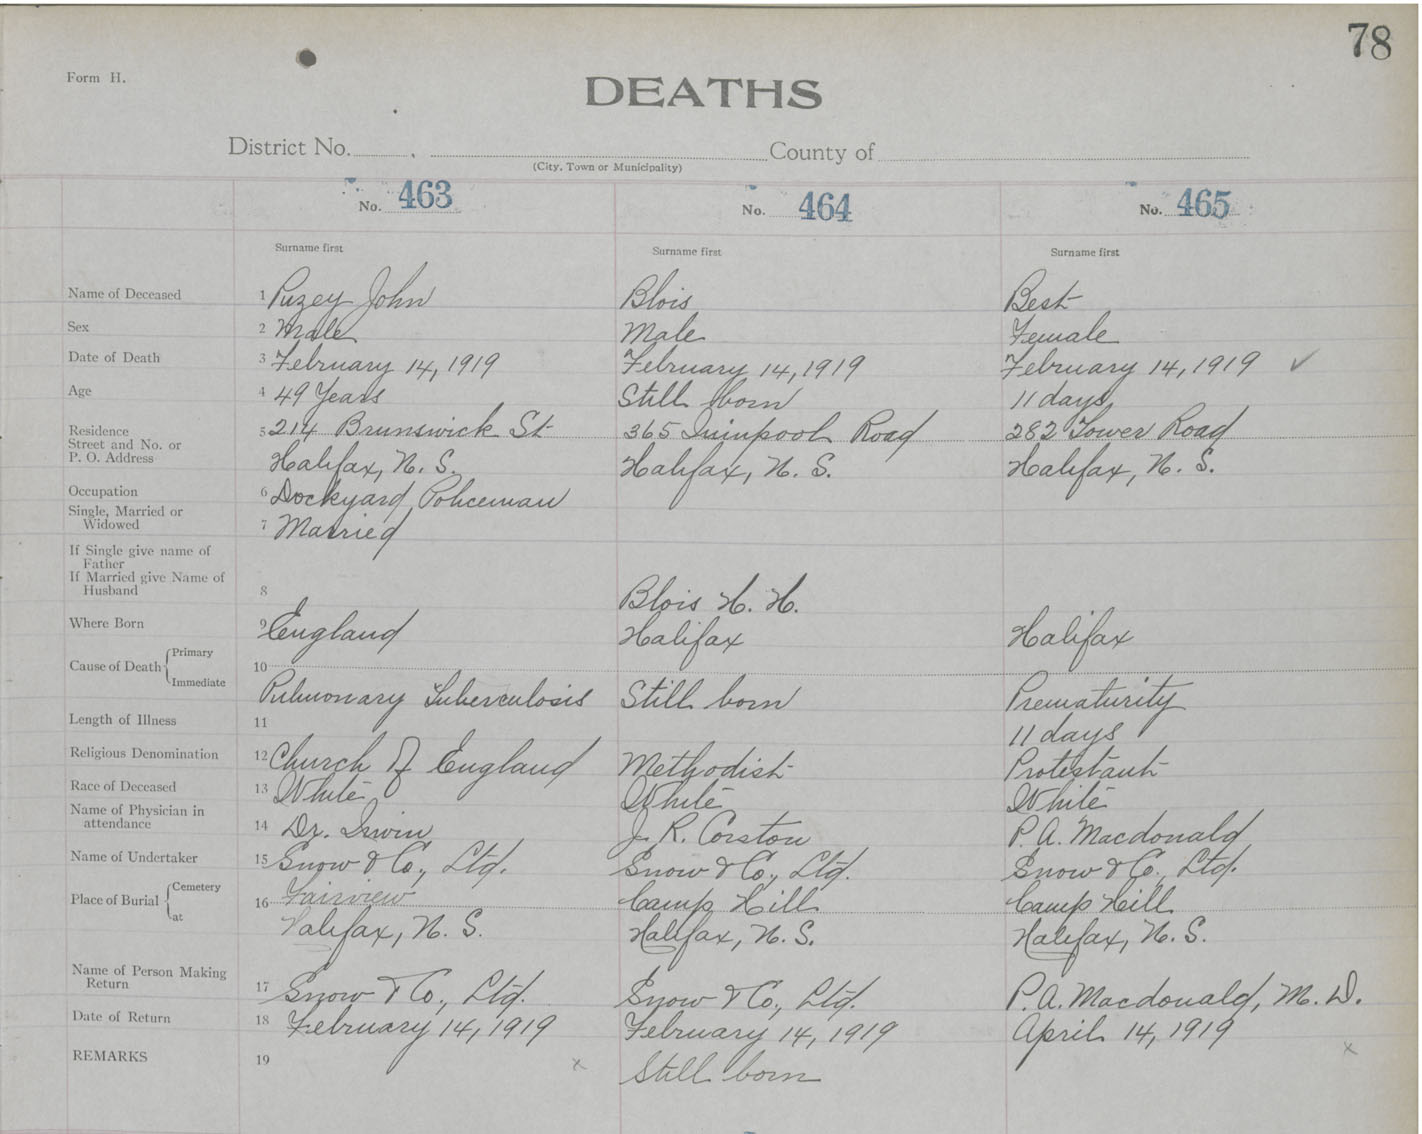 78
Form H.
DEATHS
District No. , County of
(City, Town or Municipality)
No. 463 No. 464 No. 465
Surname first Surname first Surname first
Name of Deceased 1 Puzey John Blois Best
Sex 2 Male Male Female
Date of Death 3 February 14, 1919 February 14, 1919 February 14, 1919 ✓
Age 4 49 Years Still born 11 days
Residence
Street and No. or 5 214 Brunswick St 365 Quinpool Road 282 Tower Road
P. O. Address Halifax, N. S. Halifax, N. S. Halifax, N. S.
Occupation 6 Dockyard Policeman
Single, Married or
Widowed 7 Married
If Single give name of
Father
If Married give Name of
Husband 8 Blois H. H.
Where Born 9 England Halifax Halifax
Primary
Cause of Death 10
Immediate Pulmonary Tuberculosis Still born Prematurity
Length of Illness 11 11 days
Religious Denomination 12 Church of England Methodist Protestant
Race of Deceased 13 White White White
Name of Physician in
attendance 14 Dr. Irwin J. R. Corston P. A. Macdonald
Name of Undertaker 15 Snow & Co., Ltd. Snow & Co., Ltd. Snow & Co., Ltd.
Cemetery
Place of Burial 16 Fairview Camp Hill Camp Hill
at Halifax, N. S. Halifax, N. S. Halifax, N. S.
Name of Person Making
Return 17 Snow & Co., Ltd. Snow & Co., Ltd. P. A. Macdonald, M. D.
Date of Return 18 February 14, 1919 February 14, 1919 April 14, 1919
REMARKS 19 x Still born x